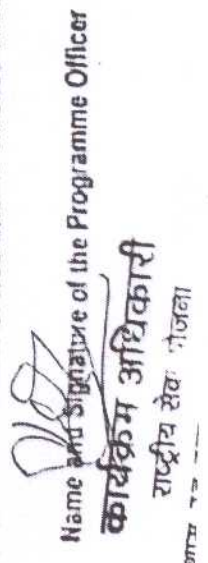 Name and Signature of the Programme Officer
कार्यक्रम अधिकारी
राष्ट्रीय सेवा योजना